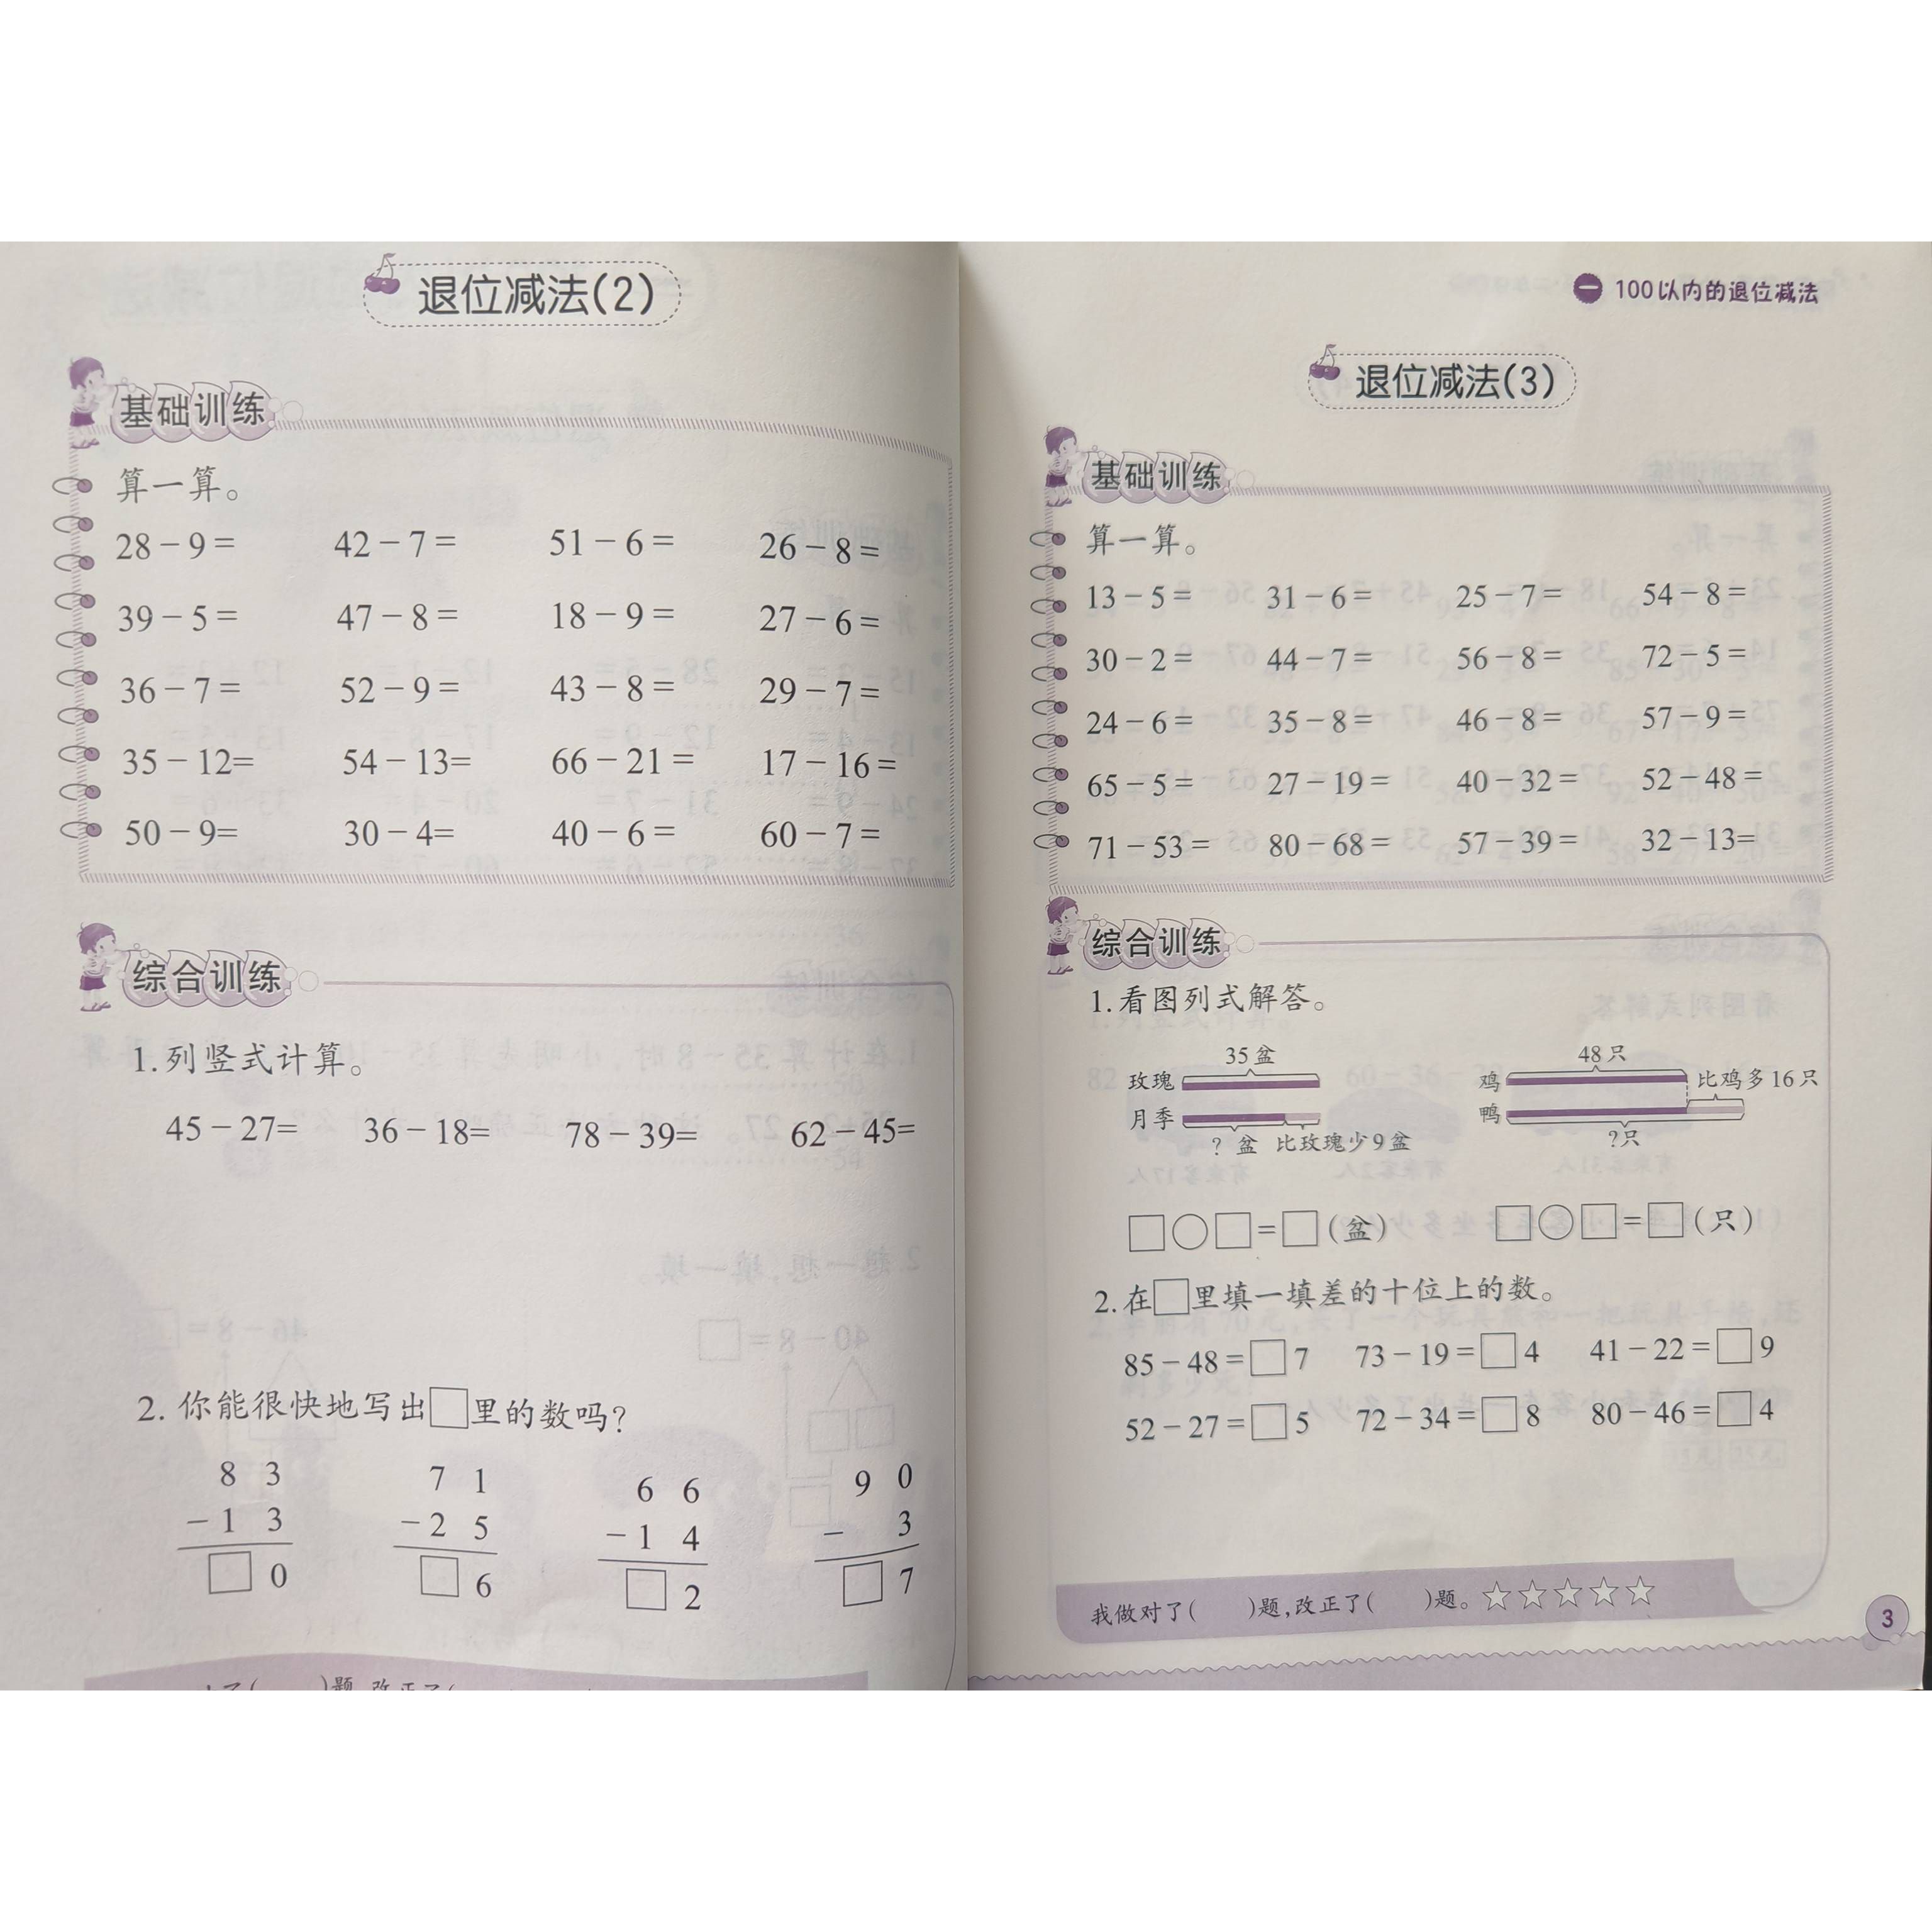 退位减法(2)
基础训练
算一算。
28－9＝ 42－7＝ 51－6＝ 26－8＝
39－5＝ 47－8＝ 18－9＝ 27－6＝
36－7＝ 52－9＝ 43－8＝ 29－7＝
35－12＝ 54－13＝ 66－21＝ 17－16＝
50－9＝ 30－4＝ 40－6＝ 60－7＝
综合训练
1.列竖式计算。
45－27＝ 36－18＝ 78－39＝ 62－45＝
2.你能很快地写出□里的数吗？
8 3 7 1 6 6 9 0
－1 3 －2 5 －1 4 － 3
□ 0 □ 6 □ 2 □ 7
)题,改正了(
一 100以内的退位减法
退位减法(3)
基础训练
算一算。
13－5＝ 31－6＝ 25－7＝ 54－8＝
30－2＝ 44－7＝ 56－8＝ 72－5＝
24－6＝ 35－8＝ 46－8＝ 57－9＝
65－5＝ 27－19＝ 40－32＝ 52－48＝
71－53＝ 80－68＝ 57－39＝ 32－13＝
综合训练
1.看图列式解答。
35盆 48只
玫瑰 鸡 比鸡多16只
月季 鸭
？盆 比玫瑰少9盆 ？只
□○□＝□(盆) □○□＝□(只)
2.在□里填一填差的十位上的数。
85－48＝□7 73－19＝□4 41－22＝□9
52－27＝□5 72－34＝□8 80－46＝□4
我做对了( )题,改正了( )题。☆☆☆☆☆
3